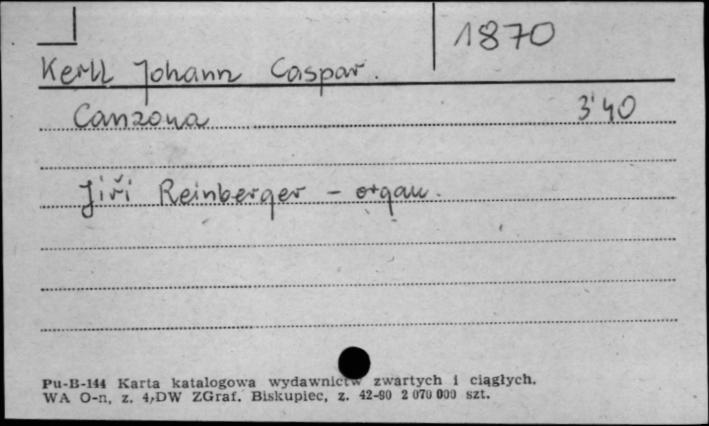 1870
Kerll Johann Caspar.
Canzona 3'40
Jiří Reinberger - organ.
Pu-B-144 Karta katalogowa wydawnictw zwartych i ciągłych.
WA O-n, z. 4/DW ZGraf. Biskupiec, z. 42-80 2 070 000 szt.